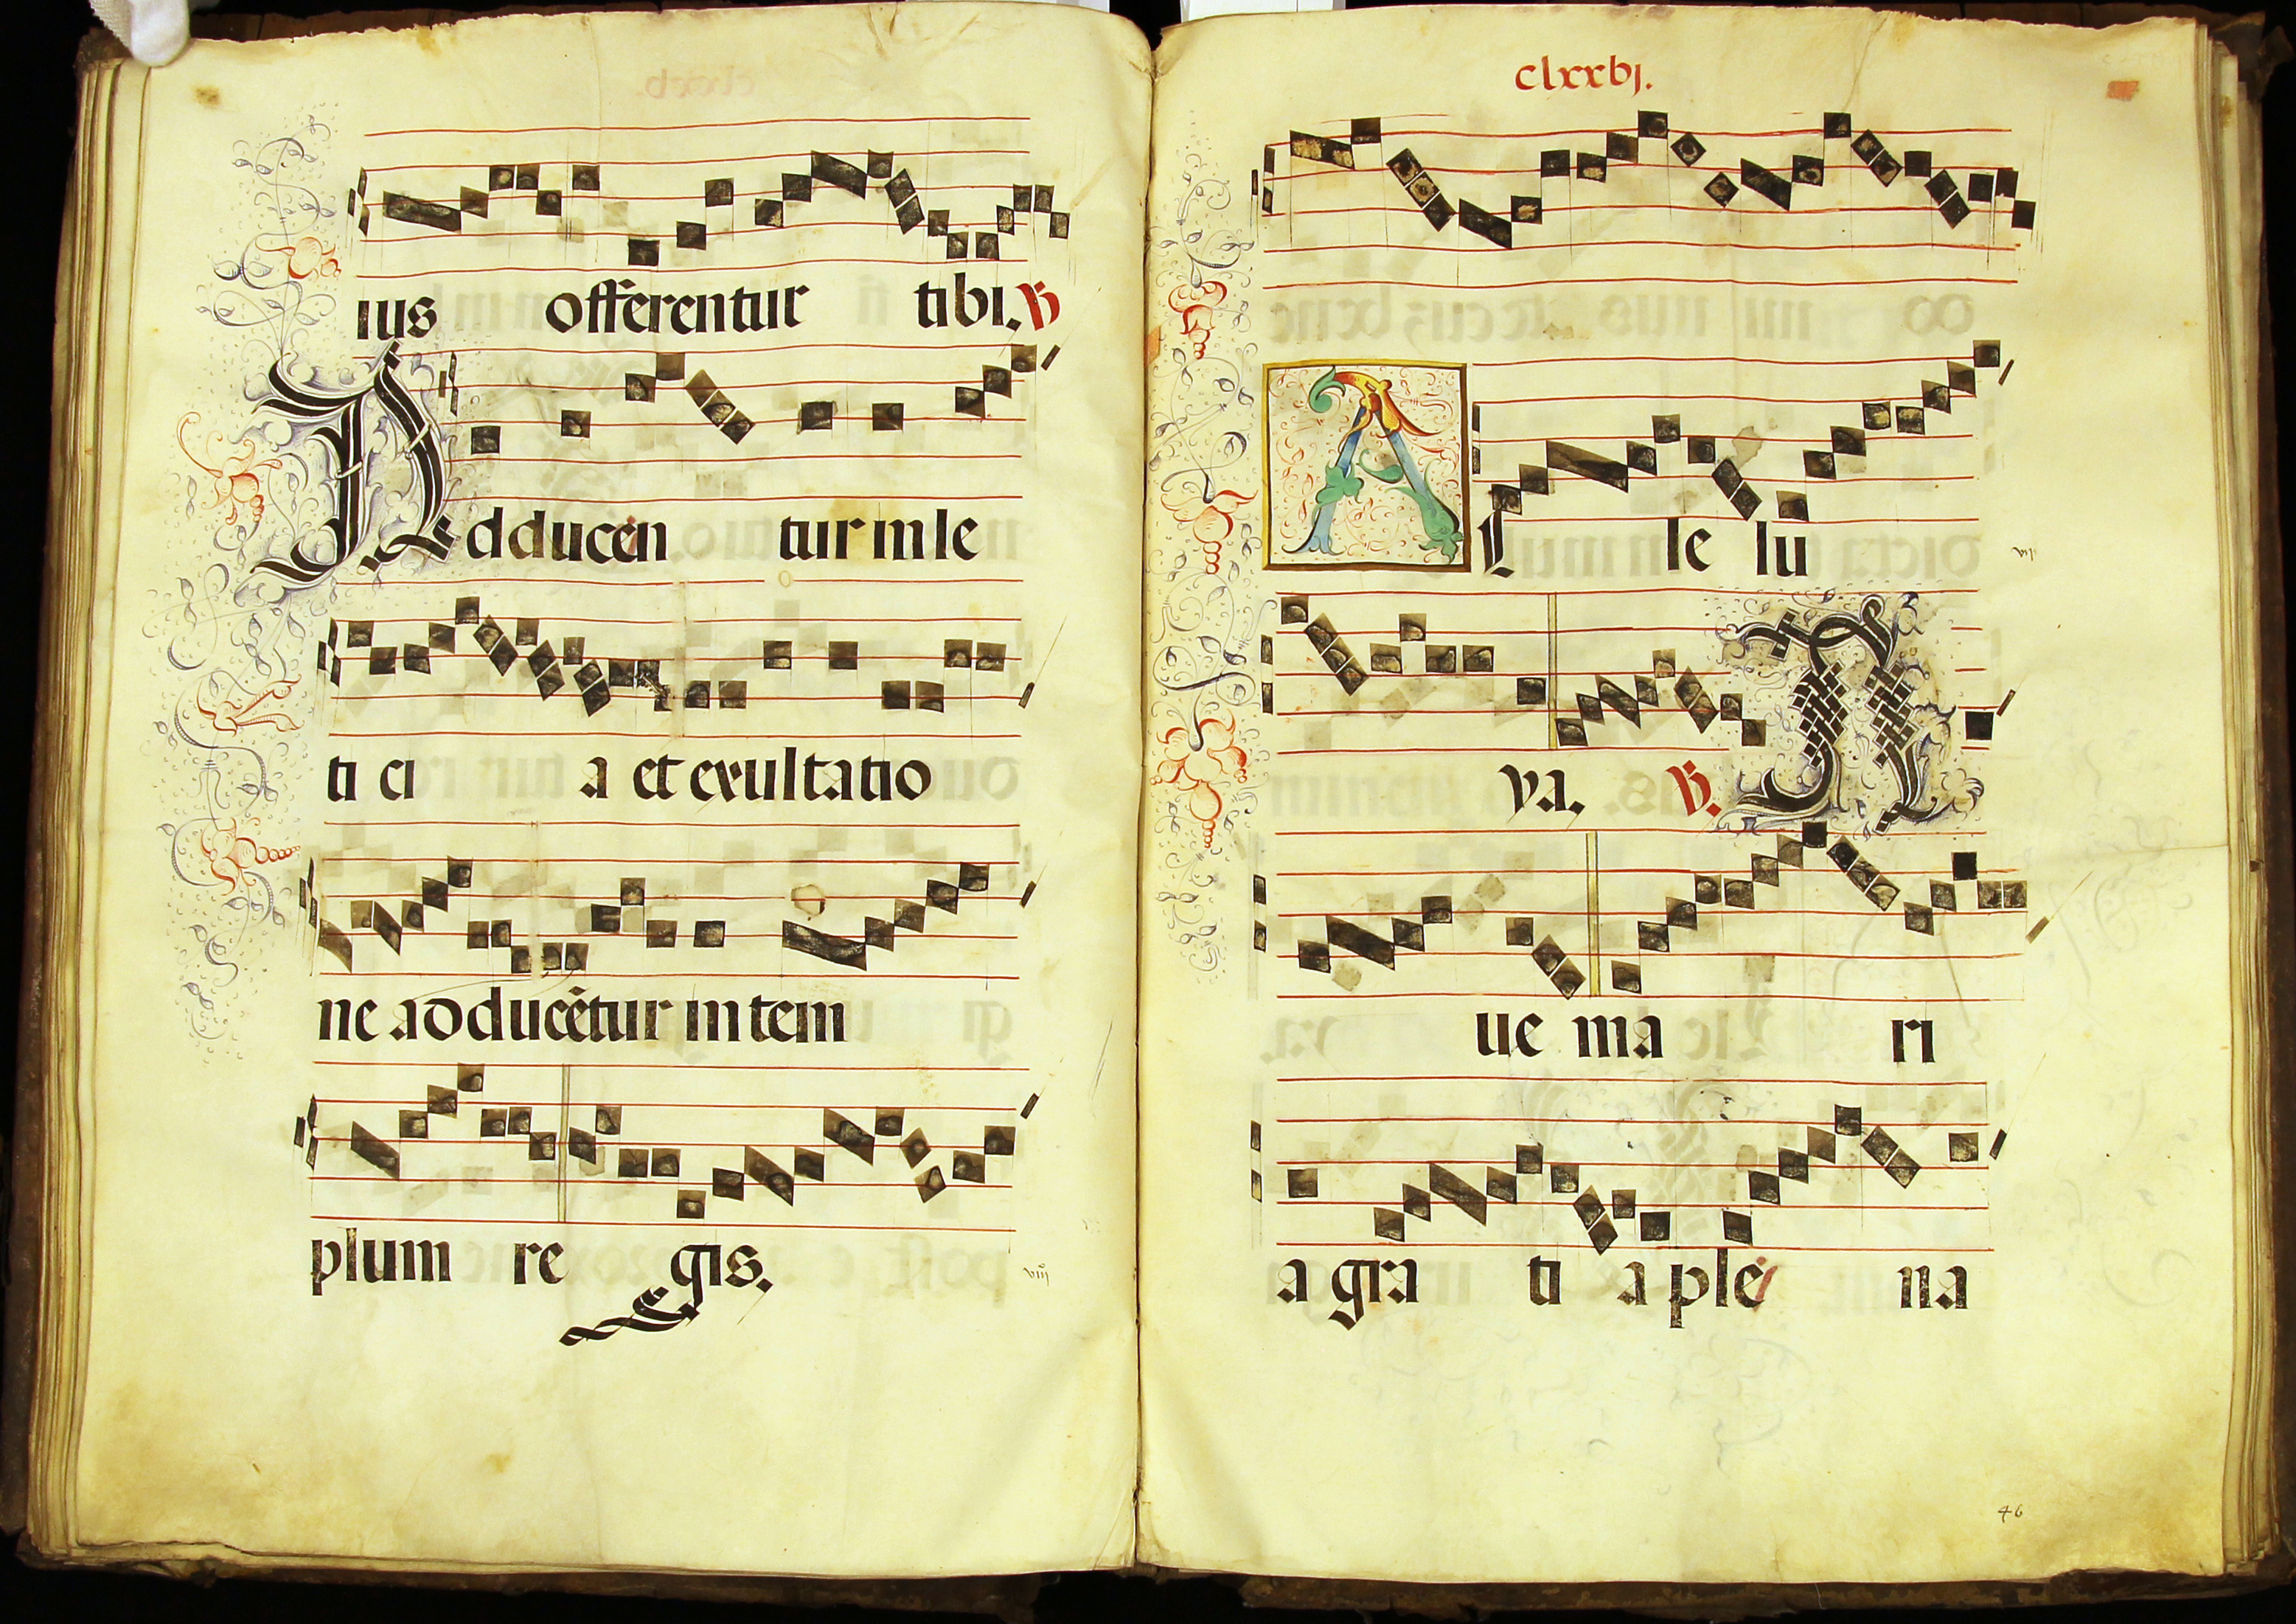 ius offerentur tibi. ℣
Adducen tur in le
ti ci a et exultatio
ne adducētur in tem
plum re gis.
viii
clxxbj.
A L le lu
vii
ya. ℣. A
ue ma ri
a gra ti a ple na
46